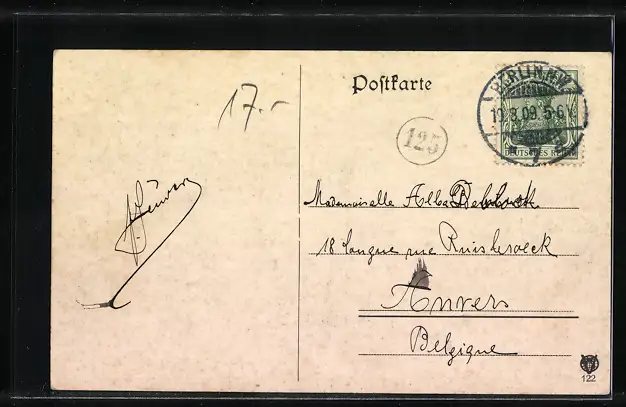 Postkarte
17.-
125
BERLIN N.W.
10.3.09. 5-6 N
DEUTSCHES REICH
Mademoiselle Alba
18 longue rue Ruisbroeck
Anvers
Belgique
122